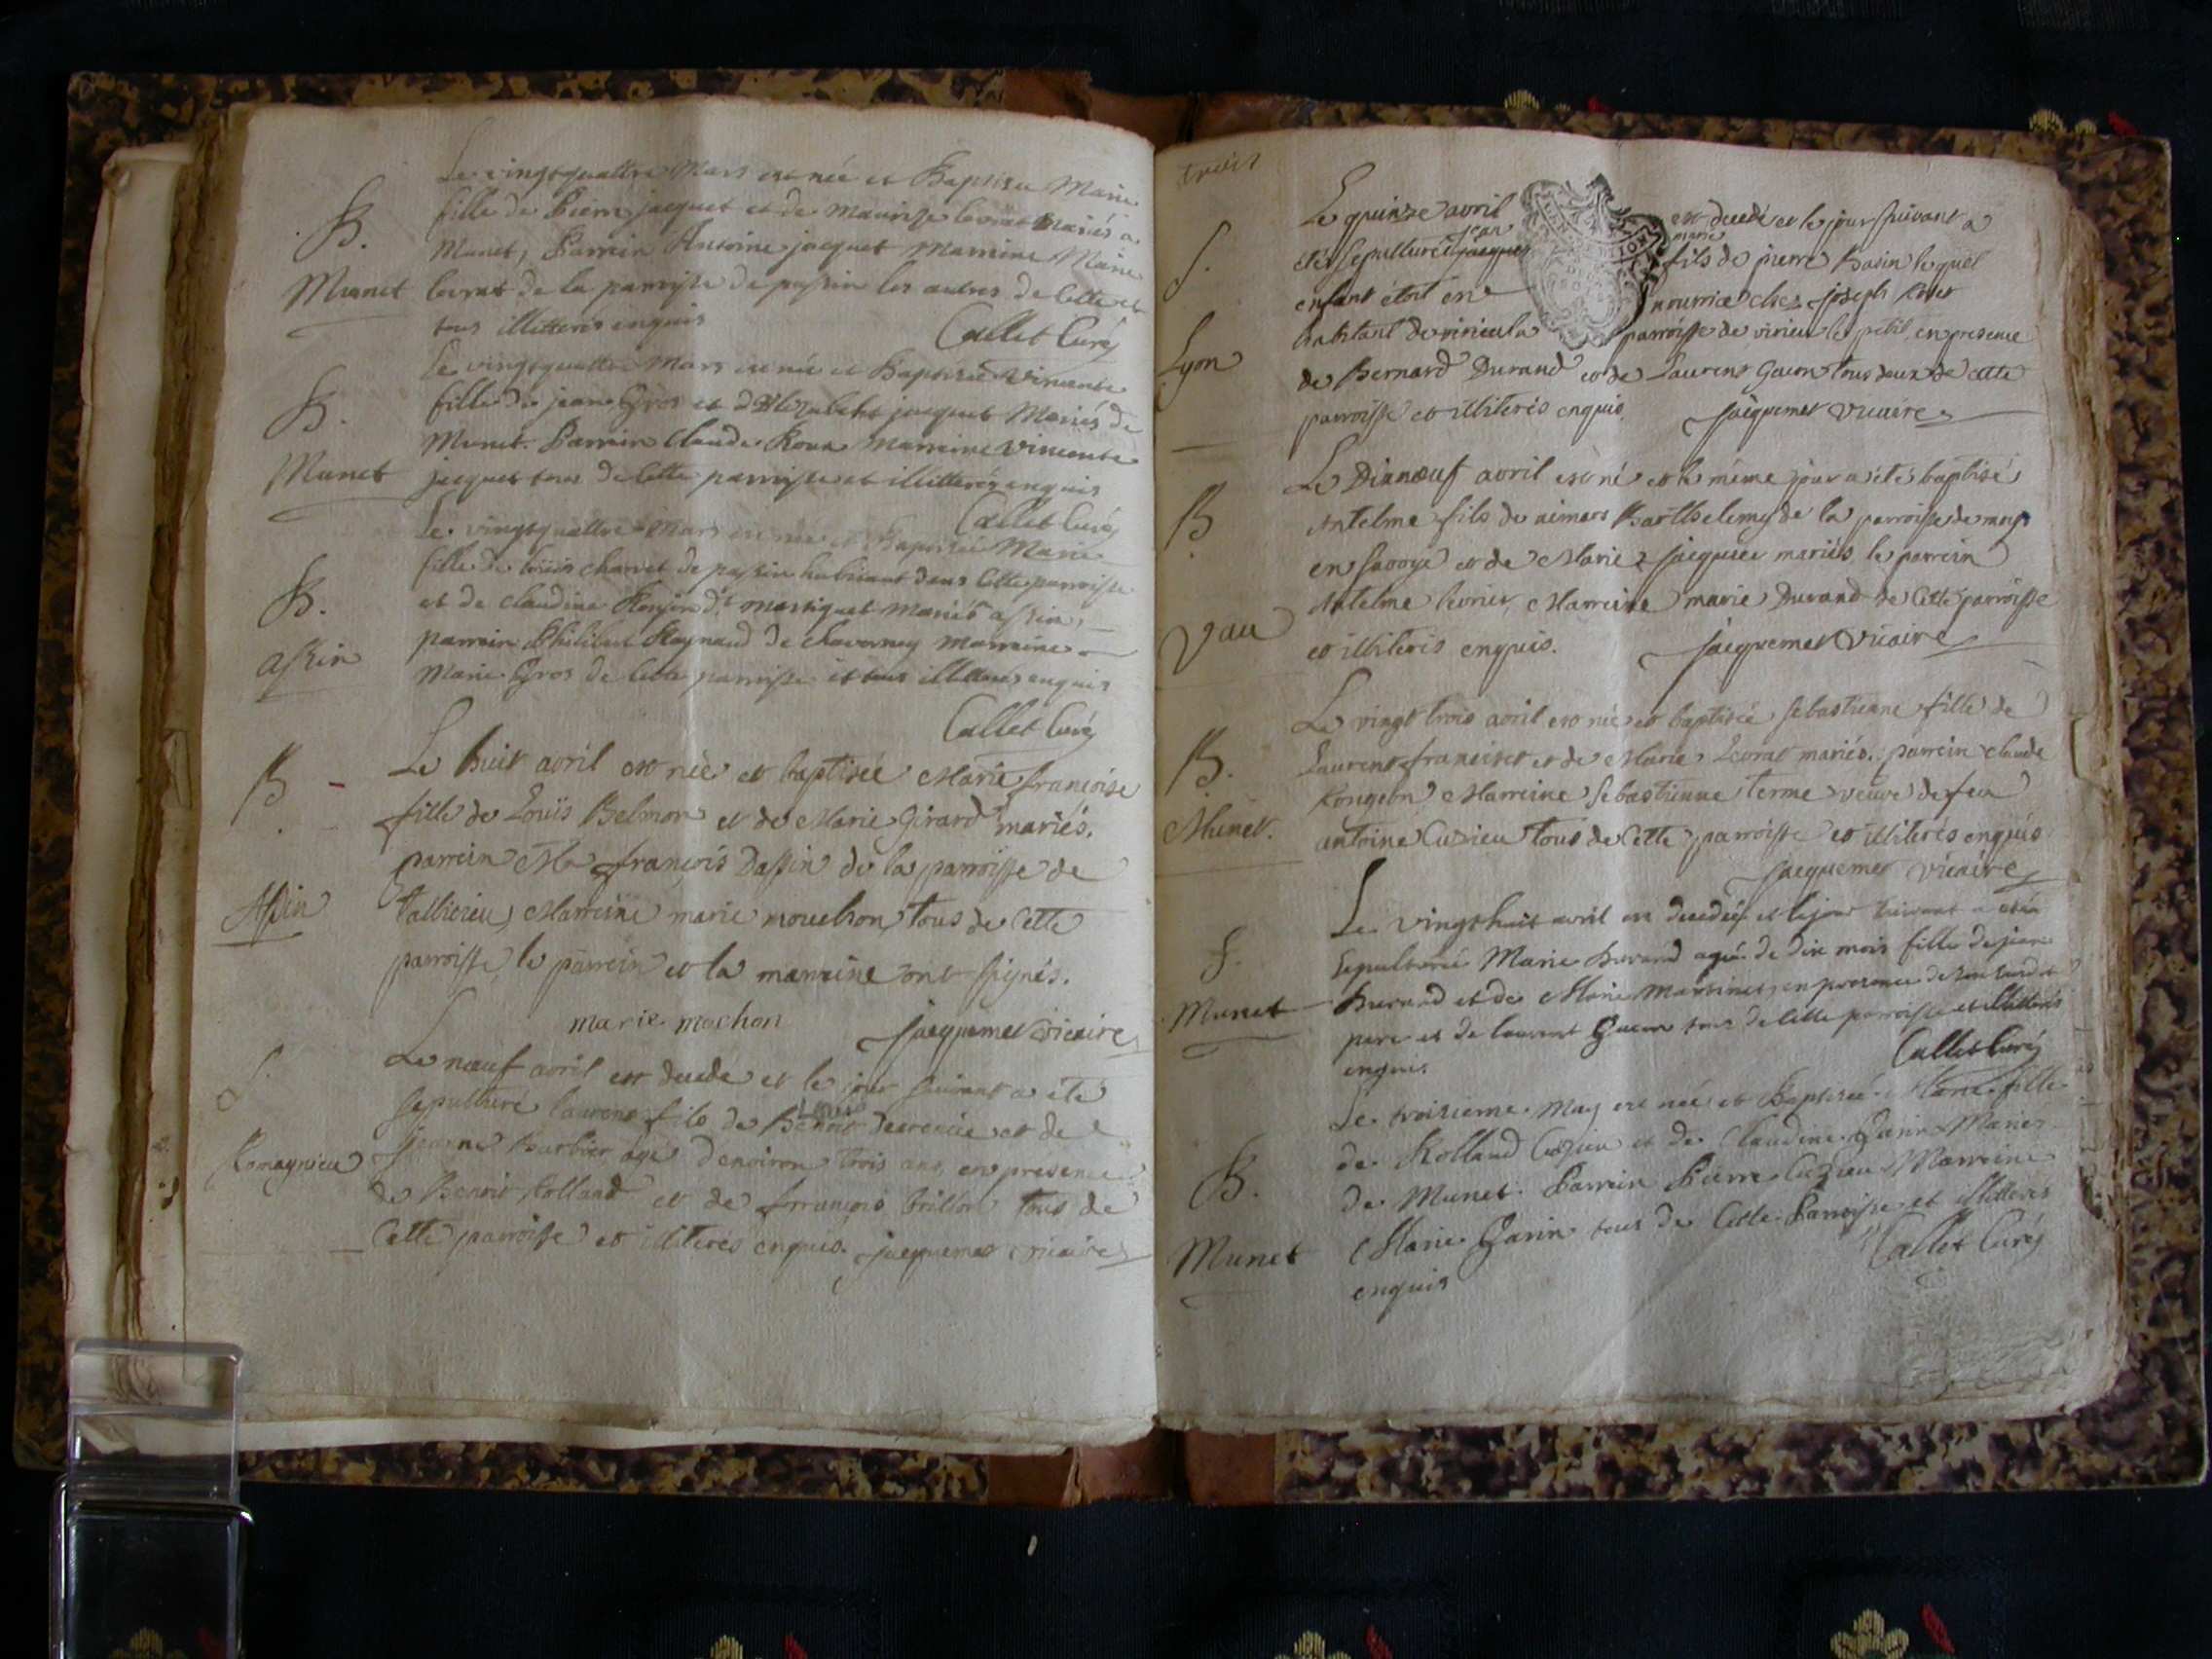 B.
Munet
Le vingtquattre Mars est née et Baptisée Marie
fille de Pierre jacquet et de Maurise levrat Mariés a
Munet, Parrein Antoine jacquet Marreine Marie
levrat de la parroisse de passin les autres de Cette et
tous illitterés enquis
Callet Curé
B.
Munet
Le vingtquattre Mars est née et Baptisée Vincente
fille de jean Gros et d'Elizabeht jacquet Mariés de
Munet. Parrein Claude Roux Marreine Vincente
jacquet tous de Cette parroisse et illitterés enquis
Callet Curé
B.
assin
Le vingtquattre Mars est née et Baptisée Marie
fille de loüis charvet de passin habitant dans Cette parroisse
et de claudine dt martiquet Mariés assin,
parrein Philibert Raynaud de Chavorney Marreine
Marie Gros de Cette parroisse et tous illitterés enquis
Callet Curé
B
Assin
Le huit avril est née et baptisée Marie françoise
fille de Loüis Belmon et de Marie Girard mariés.
parrein Mr françois Dassin de la parroisse de
tallicieu, Marreine marie mouchon, tous de Cette
parroisse, le parrein et la marreine ont signés.
marie mochon jacquemet vicaire
S.
Romagnieu
Le nœuf avril est decedé et le jour suivant a été
sepulturé laurent fils de Benoit et de
jeanne Barbier agé d'environ trois ans, en presence
de Benoit Rolland et de françois brillon tous de
Cette parroisse et illiterés enquis. jacquemet vicaire
trois
S.
Lyon
Le quinze avril est decedé et le jour suivant a
été sepulturé jean jacques marie fils de pierre Basin lequel
enfant étoit en nourrice chez joseph
habitant de parroisse de virieu le petit, en presence
de Bernard Durand et de Laurent Gacon tous deux de cette
parroisse et illiterés enquis. jacquemet vicaire
B
Vau
Le Dixnœuf avril est né et le même jour a été baptisé
Antelme fils de aimars Barthelemy de la parroisse de
en savoye et de Marie jacquier mariés, le parrein
Antelme levrier, Marreine marie Durand de Cette parroisse
et illiteris enquis. jacquemet vicaire
B.
Munet.
Le vingt trois avril est née et baptisée sebastienne fille de
Laurent franciset et de Marie Levrat mariés. parrein claude
Rongeon Marreine sebastienne terme veuve de feu
antoine Cuzieu tous de Cette parroisse et illiterés enquis
jacquemet vicaire
S.
Munet
Le vingthuit avril est decedée et le jour suivant a été
sepulturée Marie Durand agée de dix mois fille de jean
Durand et de Marie Martinet, en presence de
pere et de laurent Gacon tous de Cette parroisse et illitterés
enquis.
Callet Curé
B.
Munet
Le troisieme May est née et Baptisée Marie fille
de Rolland Cuzieu et de Claudine Garin Mariés
de Munet. Parrein Pierre Cuzieu Marreine
Marie Garin tous de Cette Parroisse et illitterés
enquis
Callet Curé